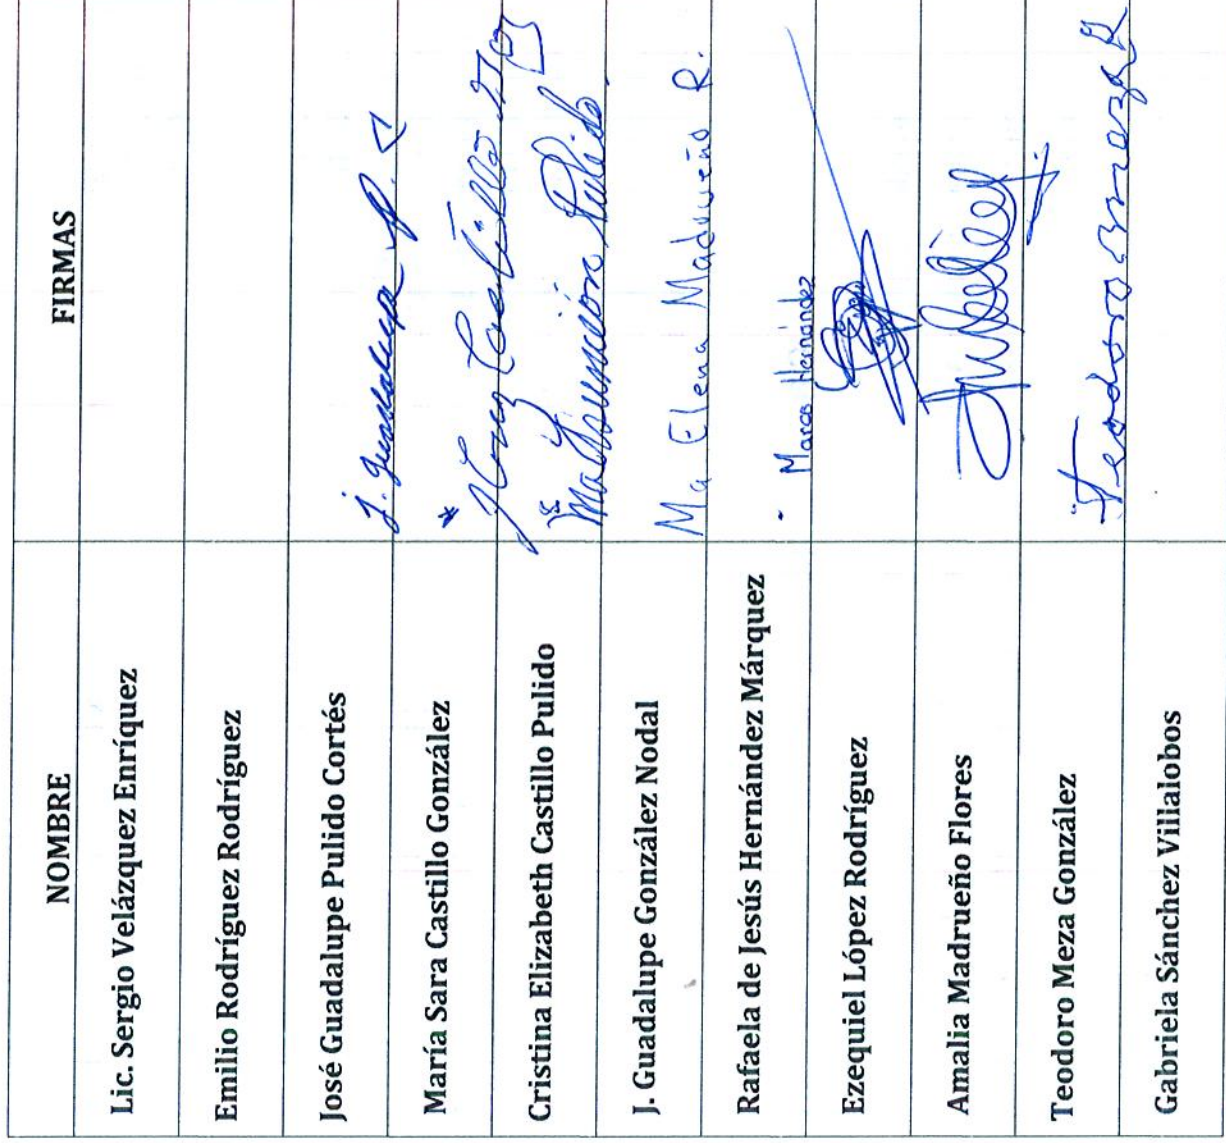 NOMBRE FIRMAS
Lic. Sergio Velázquez Enríquez
Emilio Rodríguez Rodríguez
José Guadalupe Pulido Cortés J. Guadalupe P. C
María Sara Castillo González * Cruz Castillo
Cristina Elizabeth Castillo Pulido Ma Asunción Pulido
J. Guadalupe González Nodal Ma Elena Madrueño R.
Rafaela de Jesús Hernández Márquez Marco Hernández
Ezequiel López Rodríguez
Amalia Madrueño Flores
Teodoro Meza González Teodoro meza
Gabriela Sánchez Villalobos